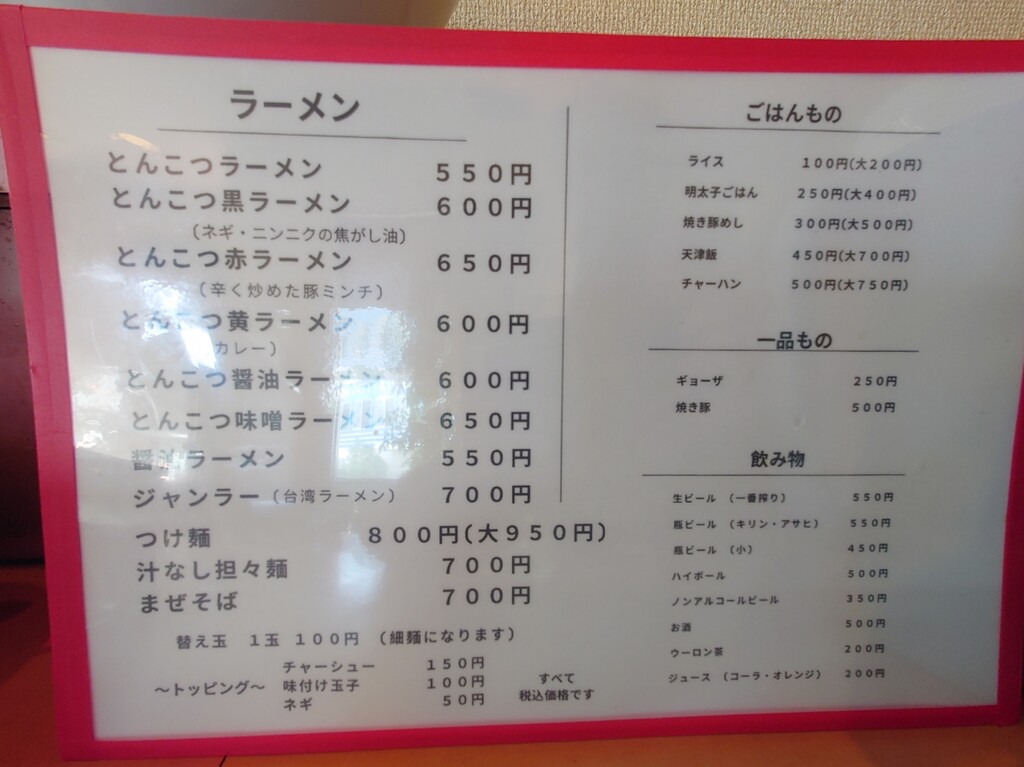 ラーメン
とんこつラーメン 550円
とんこつ黒ラーメン 600円
(ネギ・ニンニクの焦がし油)
とんこつ赤ラーメン 650円
(辛く炒めた豚ミンチ)
とんこつ黄ラーメン 600円
カレー)
とんこつ醤油ラーメン 600円
とんこつ味噌ラーメン 650円
醤油ラーメン 550円
ジャンラー(台湾ラーメン) 700円
つけ麺 800円(大950円)
汁なし担々麺 700円
まぜそば 700円
替え玉 1玉 100円 (細麺になります)
~トッピング~
チャーシュー 150円
味付け玉子 100円
ネギ 50円
すべて
税込価格です
ごはんもの
ライス 100円(大200円)
明太子ごはん 250円(大400円)
焼き豚めし 300円(大500円)
天津飯 450円(大700円)
チャーハン 500円(大750円)
一品もの
ギョーザ 250円
焼き豚 500円
飲み物
生ビール (一番搾り) 550円
瓶ビール (キリン・アサヒ) 550円
瓶ビール (小) 450円
ハイボール 500円
ノンアルコールビール 350円
お酒 500円
ウーロン茶 200円
ジュース (コーラ・オレンジ) 200円